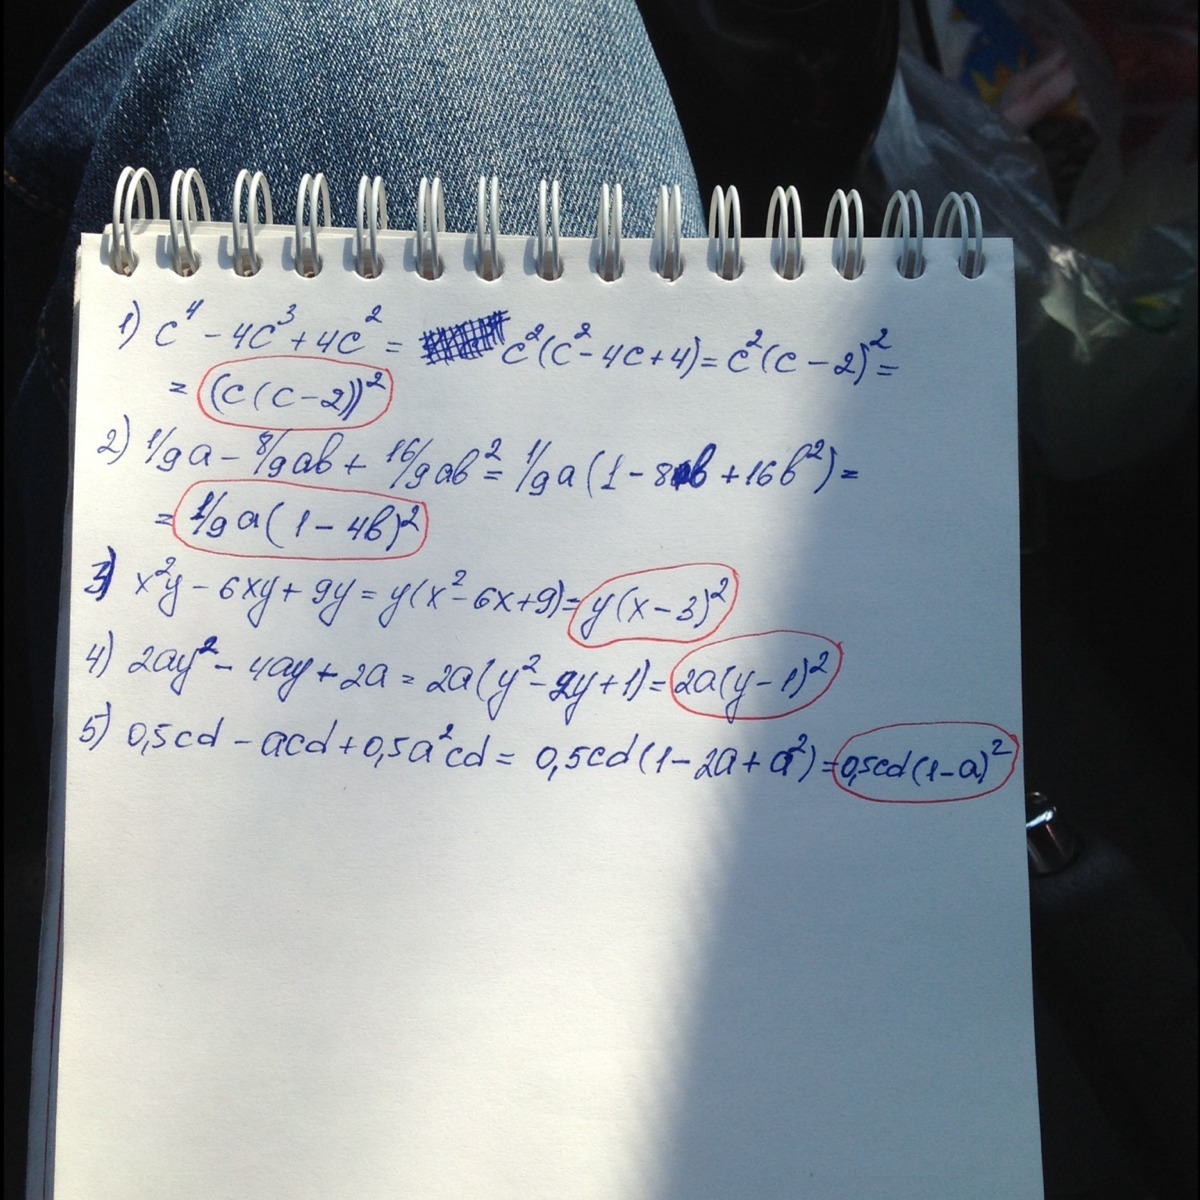 1) c⁴ - 4c³ + 4c² = c²(c² - 4c + 4) = c²(c - 2)² =
= (c(c - 2))²
2) 1/9a - 8/9ab + 16/9ab² = 1/9a(1 - 8b + 16b²) =
= 1/9a(1 - 4b)²
3) x²y - 6xy + 9y = y(x² - 6x + 9) = y(x - 3)²
4) 2ay² - 4ay + 2a = 2a(y² - 2y + 1) = 2a(y - 1)²
5) 0,5cd - acd + 0,5a²cd = 0,5cd(1 - 2a + a²) = 0,5cd(1 - a)²